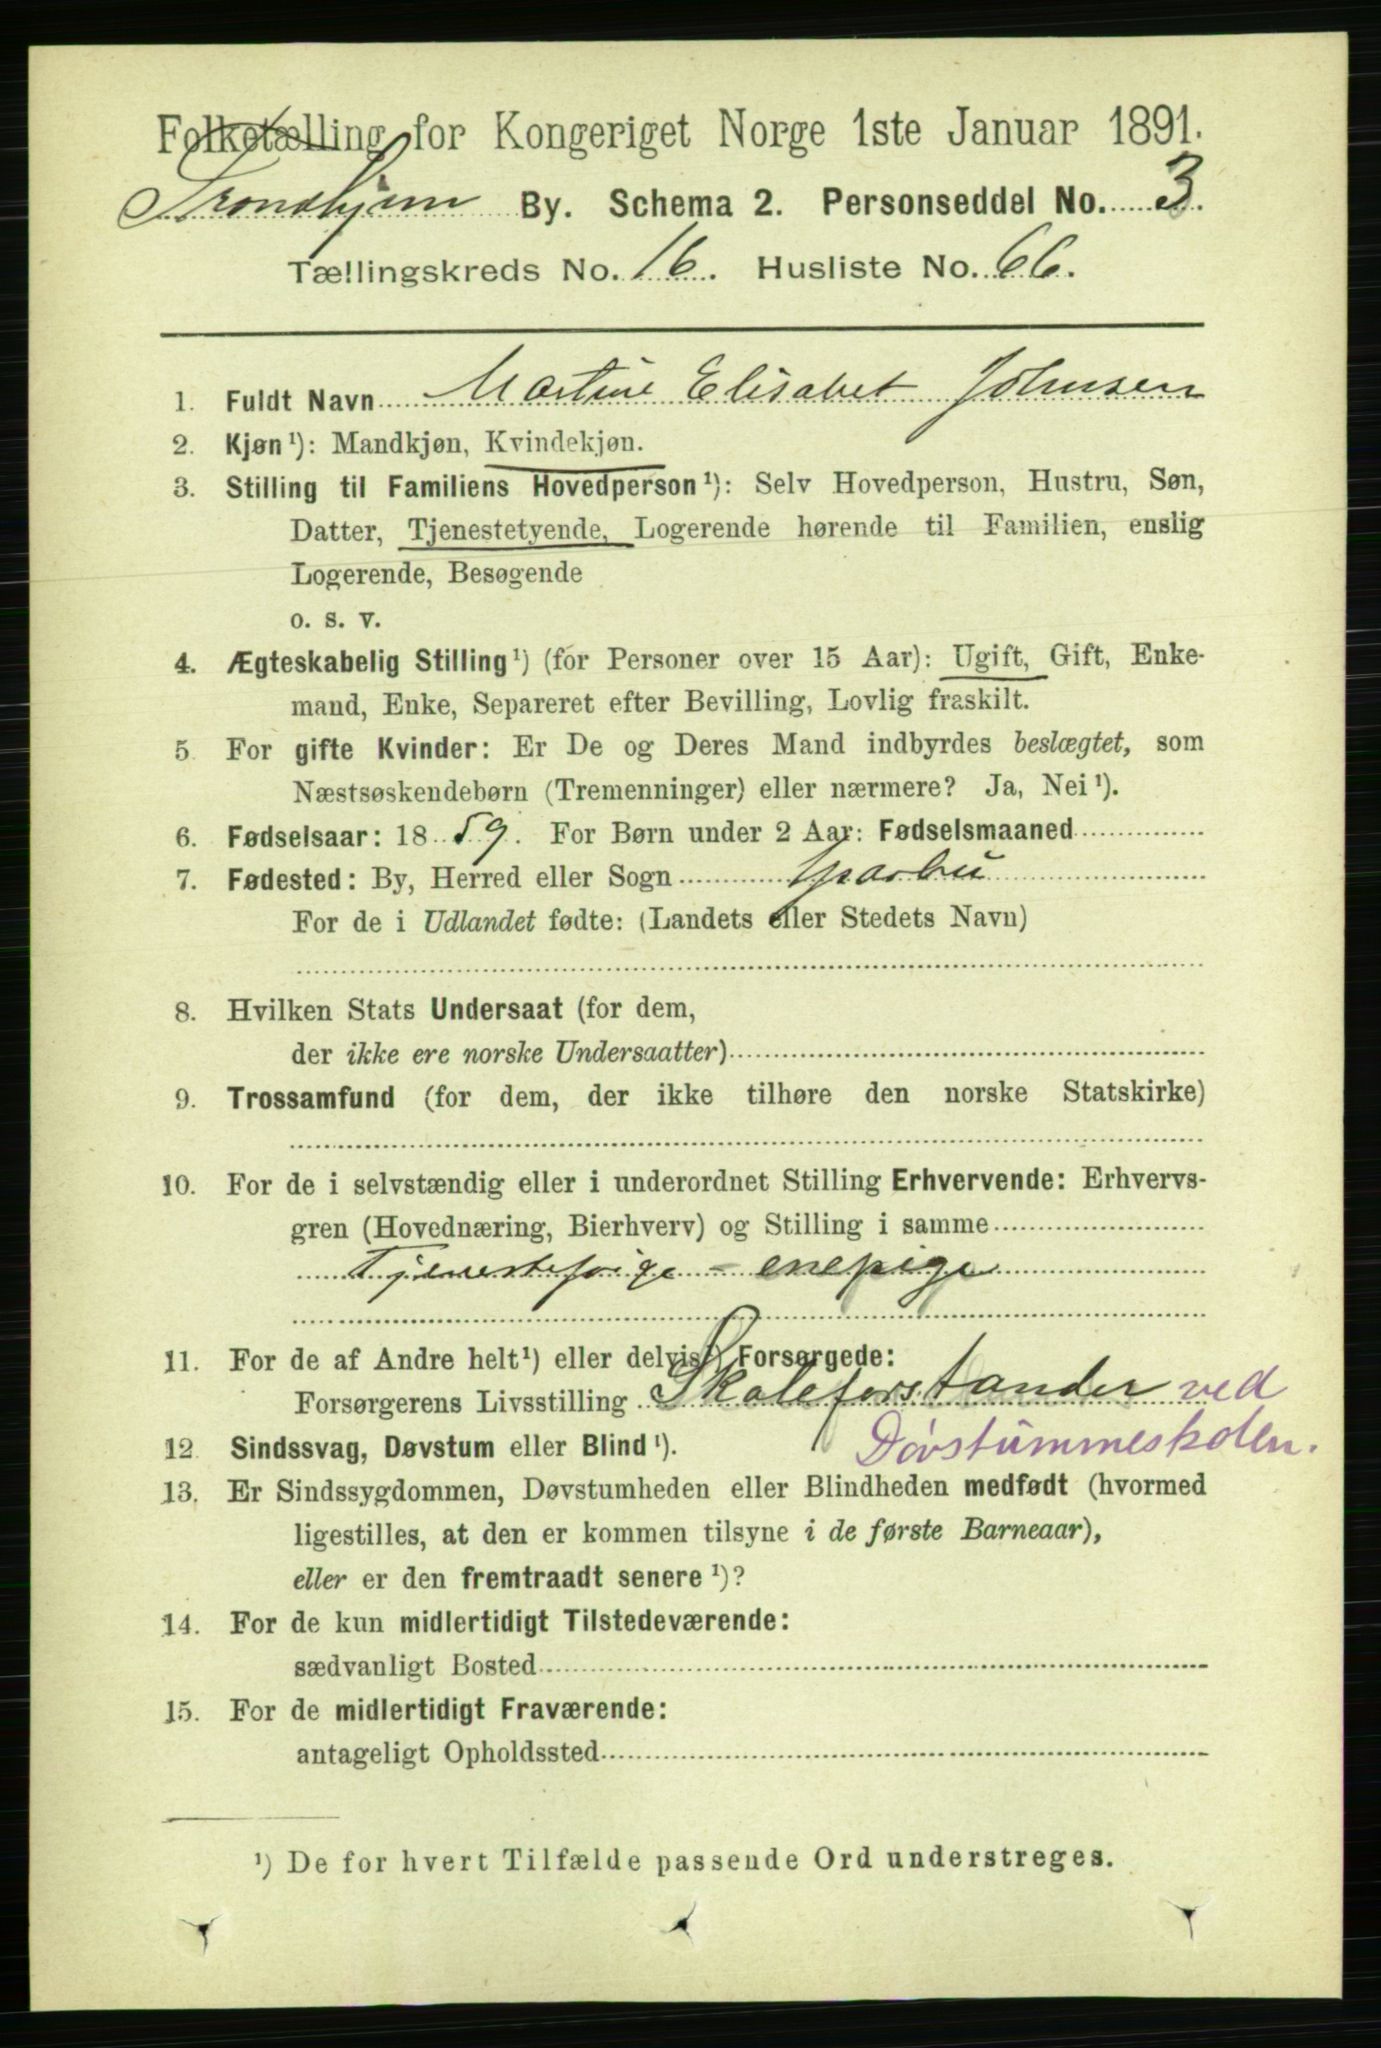 Folketælling for Kongeriget Norge 1ste Januar 1891.
Trondhjem By. Schema 2. Personseddel No. 3.
Tællingskreds No. 16. Husliste No. 66.
1. Fuldt Navn Martine Elisabet Johnsen
2. Kjøn¹): Mandkjøn, Kvindekjøn.
3. Stilling til Familiens Hovedperson¹): Selv Hovedperson, Hustru, Søn,
Datter, Tjenestetyende, Logerende hørende til Familien, enslig
Logerende, Besøgende
o. s. v.
4. Ægteskabelig Stilling¹) (for Personer over 15 Aar): Ugift, Gift, Enke-
mand, Enke, Separeret efter Bevilling, Lovlig fraskilt.
5. For gifte Kvinder: Er De og Deres Mand indbyrdes beslægtet, som
Næstsøskendebørn (Tremenninger) eller nærmere? Ja, Nei¹).
6. Fødselsaar: 1859. For Børn under 2 Aar: Fødselsmaaned
7. Fødested: By, Herred eller Sogn Sparbu
For de i Udlandet fødte: (Landets eller Stedets Navn)
8. Hvilken Stats Undersaat (for dem,
der ikke ere norske Undersaatter)
9. Trossamfund (for dem, der ikke tilhøre den norske Statskirke)
10. For de i selvstændig eller i underordnet Stilling Erhvervende: Erhvervs-
gren (Hovednæring, Bierhverv) og Stilling i samme
Tjenestepige - enepige
11. For de af Andre helt¹) eller delvis¹) Forsørgede:
Forsørgerens Livsstilling Skoleforstander ved
Døvstummeskolen.
12. Sindssvag, Døvstum eller Blind¹).
13. Er Sindssygdommen, Døvstumheden eller Blindheden medfødt (hvormed
ligestilles, at den er kommen tilsyne i de første Barneaar),
eller er den fremtraadt senere¹)?
14. For de kun midlertidigt Tilstedeværende:
sædvanligt Bosted
15. For de midlertidigt Fraværende:
antageligt Opholdssted
¹) De for hvert Tilfælde passende Ord understreges.